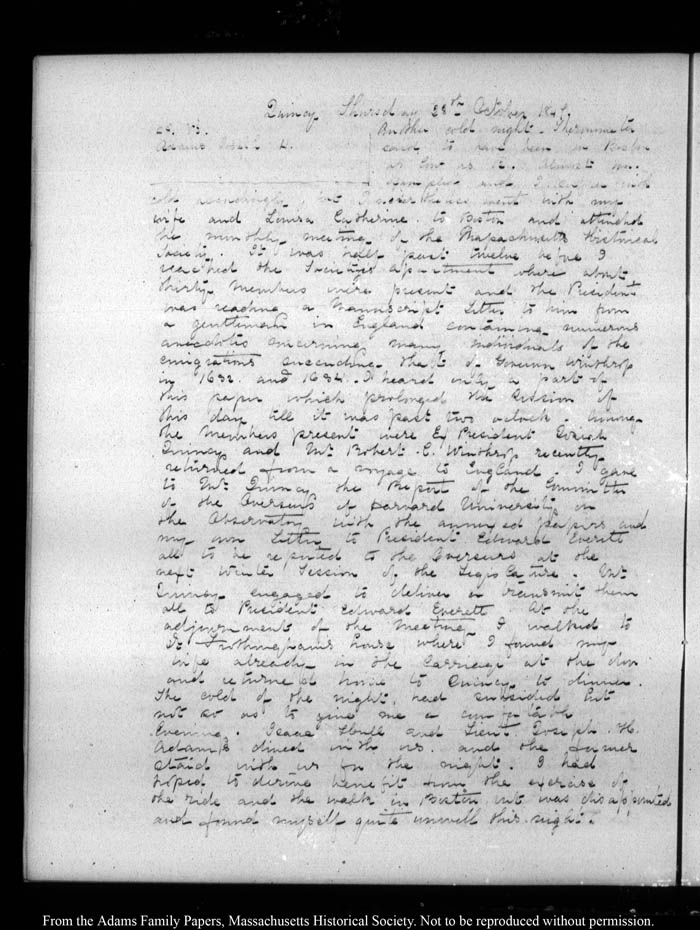 Quincy Thursday 28th October 1847.
Adams Joseph H.
Another cold night. Thermometer
said to have been in Boston
as low as
accordingly, but nevertheless went with my
wife and Louisa Catherine to Boston and attended
the monthly meeting of the Massachusetts Historical
Society. It was half past twelve before I
reached the Societies apartment where about
thirty members were present and the President
was reading a Manuscript Letter to him from
a gentleman in England containing numerous
anecdotes concerning many individuals of the
emigrations succeeding that of Governor Winthrop
in 1632. and 1634. I heard only a part of
this paper which prolonged the session of
this day till it was past two o'clock. Among
the Members present were Ex President Josiah
Quincy and Mr Robert C. Winthrop recently
returned from a voyage to England. I gave
to Mr Quincy the Report of the Committee
of the Overseers of Harvard University on
the Observatory with the annexed papers and
my own Letter to President Edward Everett
all to be reported to the Overseers at the
next Winter Session of the Legislature. Mr
Quincy engaged to deliver or transmit them
all to President Edward Everett At the
adjournment of the Meeting I walked to
Dr Frothingham's house where I found my
wife already in the Carriage at the door
and returned home to Quincy to dinner.
The cold of the night had subsided but
not so as to give me a comfortable
Evening. Isaac Hull and Lieut Joseph H.
Adams dined with us and the former
staid with us for the night. I had
hoped to derive benefit from the exercise of
the ride and the walk in Boston but was disappointed
and found myself quite unwell this night.
From the Adams Family Papers, Massachusetts Historical Society. Not to be reproduced without permission.